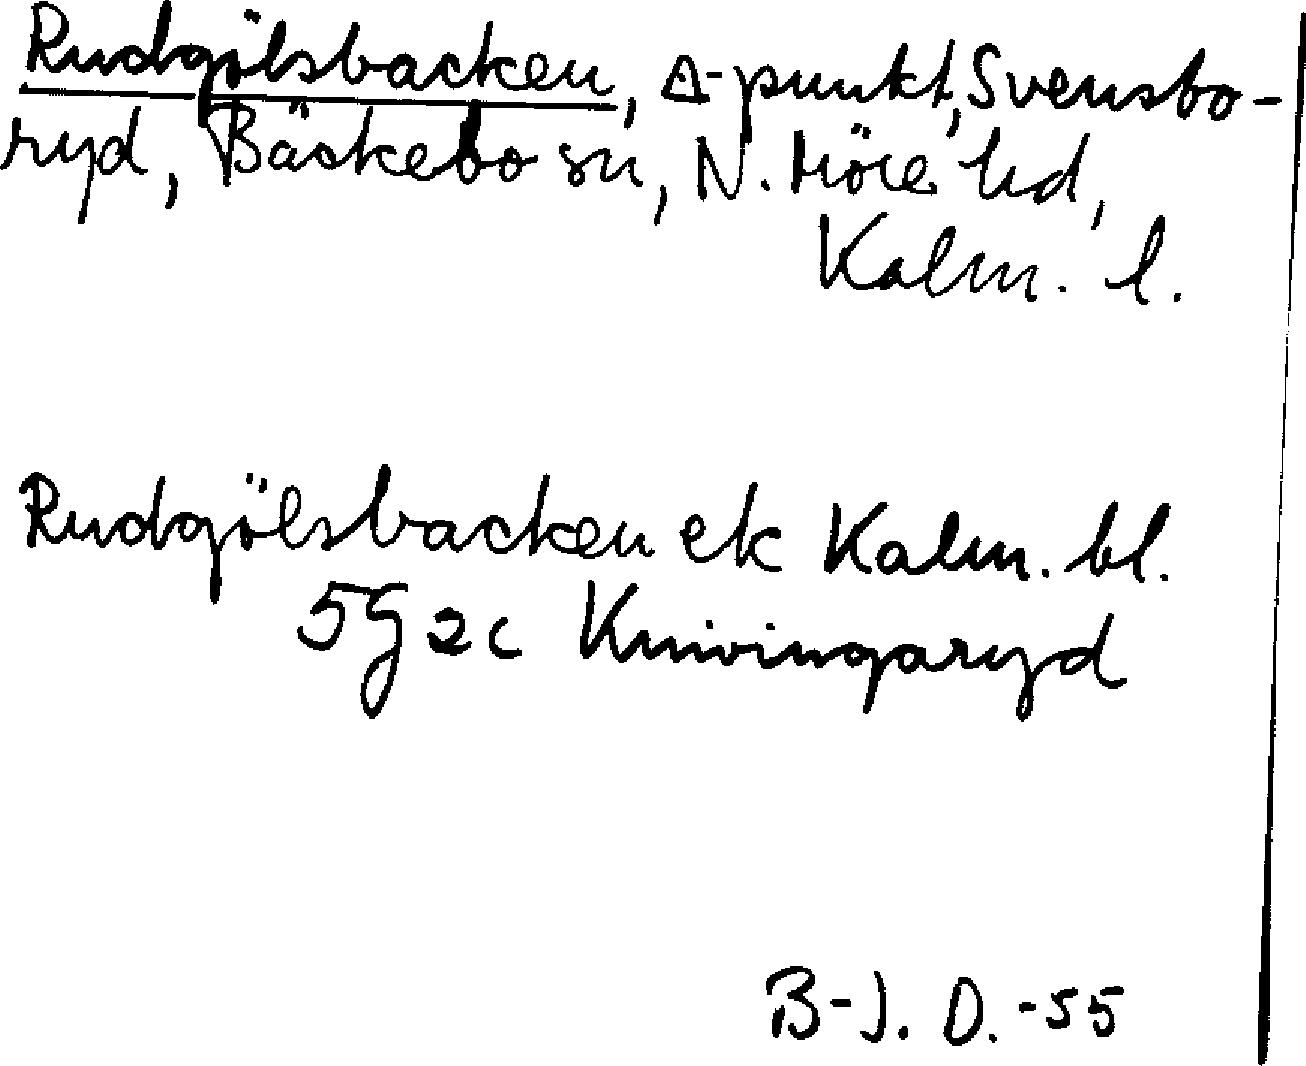 Rudgölsbacken, Δ-punkt, Svensbo-
ryd, Bäckebo sn, N. Möre hd,
Kalm. l.
Rudgölsbacken ek Kalm. bl.
5G 2c Knivingaryd
B-J. D. -55